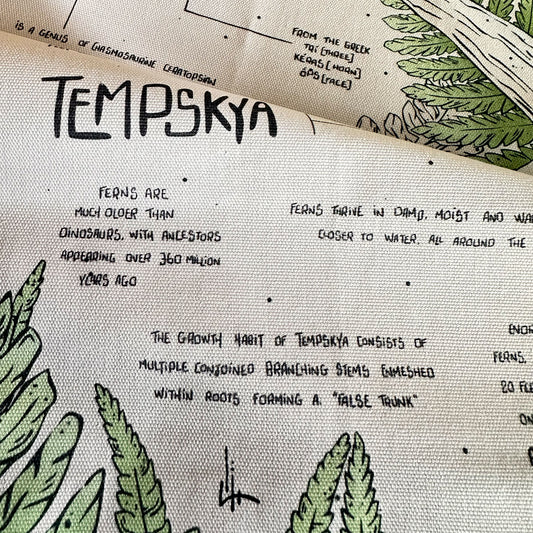 IS A GENUS OF CHASMOSAURINE CERATOPSIAN
FROM THE GREEK
TRÍ [THREE]
KÉRAS [HORN]
ÓPS [FACE]
TEMPSKYA
FERNS ARE
MUCH OLDER THAN
DINOSAURS. WITH ANCESTORS
APPEARING OVER 360 MILLION
YEARS AGO
FERNS THRIVE IN DAMP, MOIST AND
CLOSER TO WATER. ALL AROUND THE
THE GROWTH HABIT OF TEMPSKYA CONSISTS OF
MULTIPLE CONJOINED BRANCHING STEMS ENMESHED
WITHIN ROOTS FORMING A "FALSE TRUNK"
FERNS.